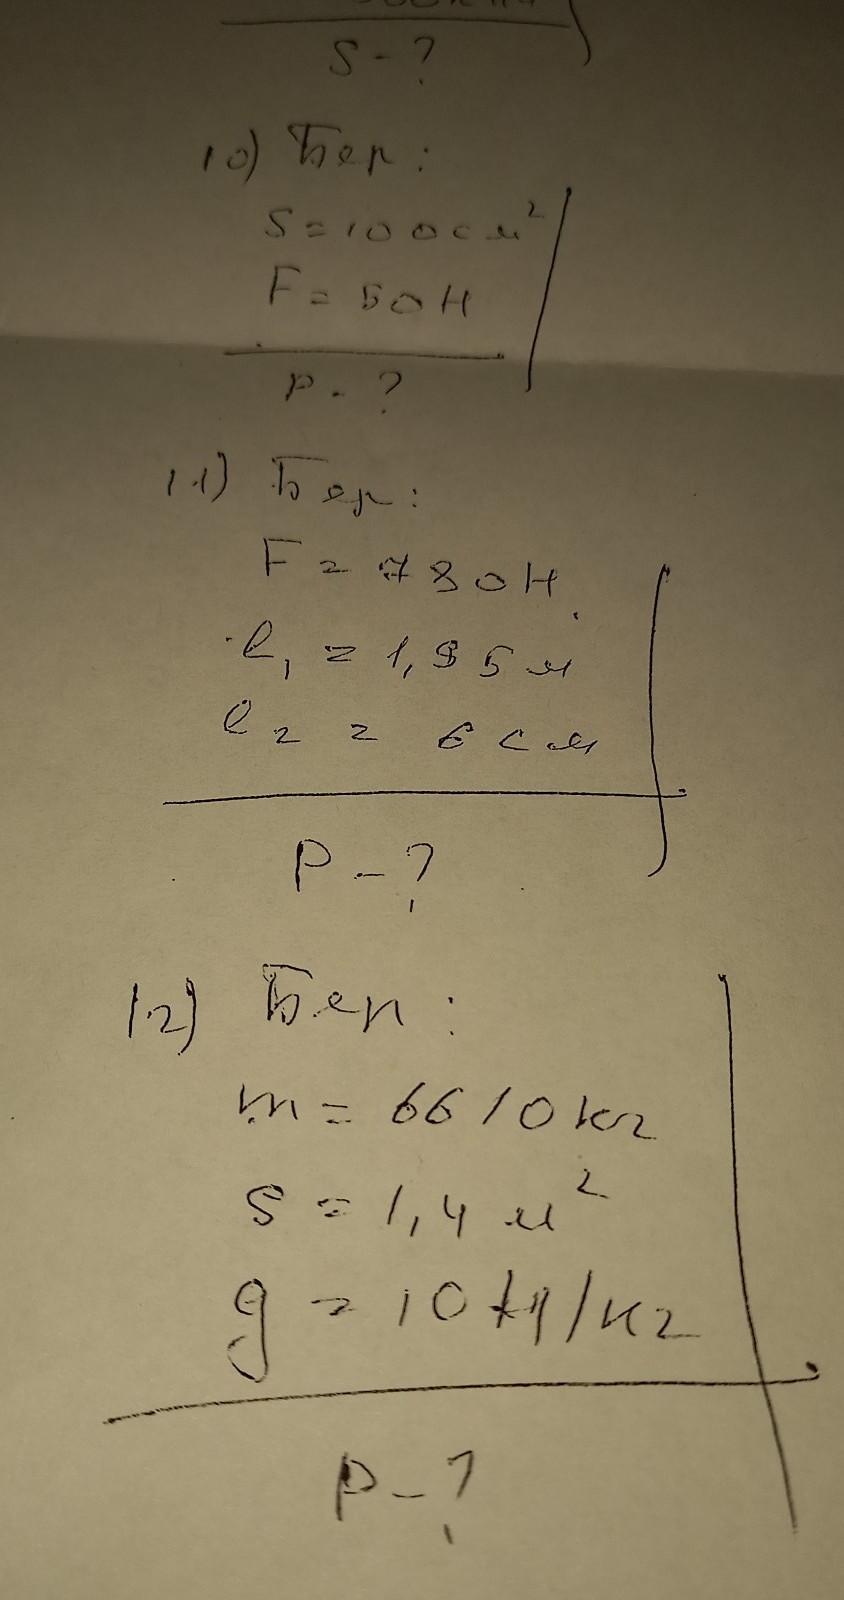 S-?
10) Бер:
S=100см²
F=50Н
P-?
11) Бер:
F=780Н
l₁=1,95м
l₂=6см
P-?
12) Бер:
m=6610кг
S=1,4м²
g=10Н/кг
P-?